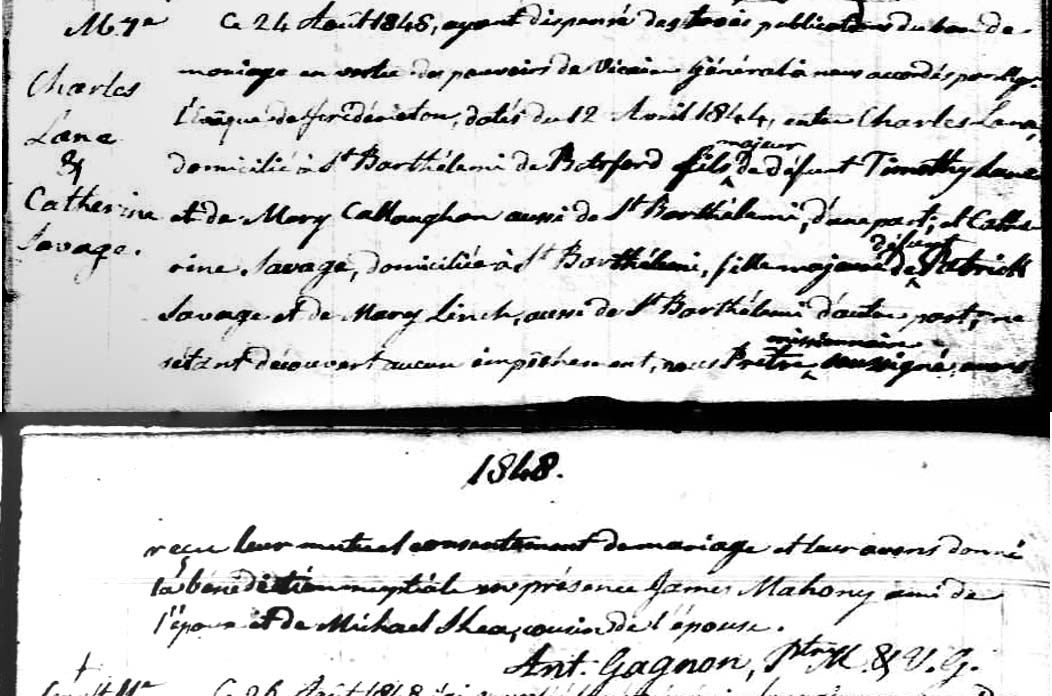 M. 7e
Charles
Lane
&
Catherine
Savage.
Ce 24 Août 1848, ayant dispensé des trois publications du ban de
mariage en vertu des pouvoirs de Vicaire Général à nous accordés par Mgr.
l'Evêque de Frédéricton, datés du 12 Avril 1844, entre Charles Lane,
majeur
domicilié à St Barthélemi de Botsford fils de défunt Timothy Lane
et de Mary Callaughan aussi de St Barthélemi, d'une part; et Cathe-
défunt
rine Savage, domiciliée à St Barthélemi, fille majeure de Patrick
Savage et de Mary Linch, aussi de St Barthélemi d'autre part; ne
missionnaire
s'étant découvert aucun empêchement, nous Prêtre soussigné, avons
1848.
reçu leur mutuel consentement de mariage et leur avons donné
la bénédiction nuptiale en présence James Mahony ami de
l'époux et de Michael Shea, cousin de l'épouse.
Ant. Gagnon, Ptre M. & V. G.
Ce 26 Août 1848